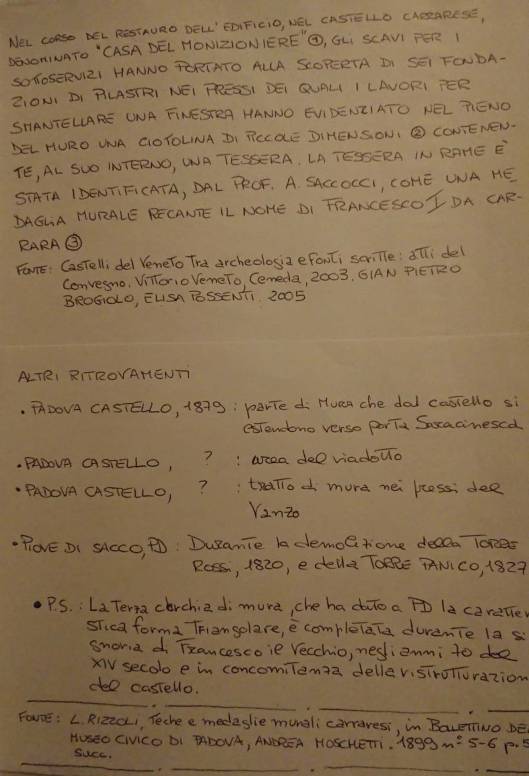 NEL CORSO DEL RESTAURO DELL'EDIFICIO, NEL CASTELLO CARRARESE,
DENOMINATO "CASA DEL MONIZIONIERE" ①, GLI SCAVI PER I
SOTTOSERVIZI HANNO PORTATO ALLA SCOPERTA DI SEI FONDA-
ZIONI DI PILASTRI NEI PRESSI DEI QUALI I LAVORI PER
SMANTELLARE UNA FINESTRA HANNO EVIDENZIATO NEL PIENO
DEL MURO UNA CIOTOLINA DI PICCOLE DIMENSIONI ② CONTENEN-
TE, AL SUO INTERNO, UNA TESSERA. LA TESSERA IN RAME È
STATA IDENTIFICATA, DAL PROF. A. SACCOCCI, COME UNA ME
DAGLIA MURALE RECANTE IL NOME DI FRANCESCO I DA CAR-
RARA ③
FONTE: Castelli del Veneto Tra archeologia e fonti scritte: atti del
Convegno, Vittorio Veneto, Ceneda, 2003. GIAN PIETRO
BROGIOLO, ELISA POSSENTI. 2005
ALTRI RITROVAMENTI
• PADOVA CASTELLO, 1879: parte di Mura che dal castello si
estendono verso porta Saracinesca
• PADOVA CASTELLO, ? : area del viadotto
• PADOVA CASTELLO, ? : tratto di mura nei pressi del
Vanzo
• PIOVE DI SACCO, PD: Durante la demolizione della TORRE
Rossi, 1820, e della TORRE PANICO, 1827
• P.S.: La Terza cerchia di mura, che ha dato a PD la caratter
stica forma Triangolare, è completata durante la si
gnoria di Francesco il Vecchio, negli anni 70 del
XIV secolo e in concomitanza della ristrutturazion
del castello.
FONTE: L. RIZZOLI, Teche e medaglie murali carraresi, in BOLLETTINO DE
MUSEO CIVICO DI PADOVA, ANDREA MOSCHETTI. 1899 n° 5-6 p. 5
succ.